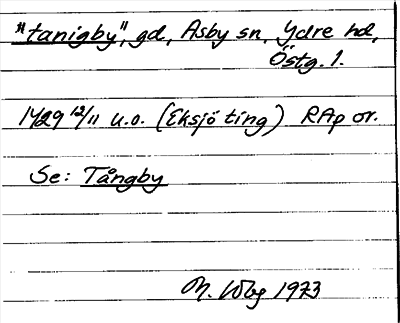 "tanigby", gd, Asby sn, Ydre hd,
Östg. l.
1429 12/11 u.o. (Eksjö ting) RAp or.
Se: Tångby
M. Wbg 1973